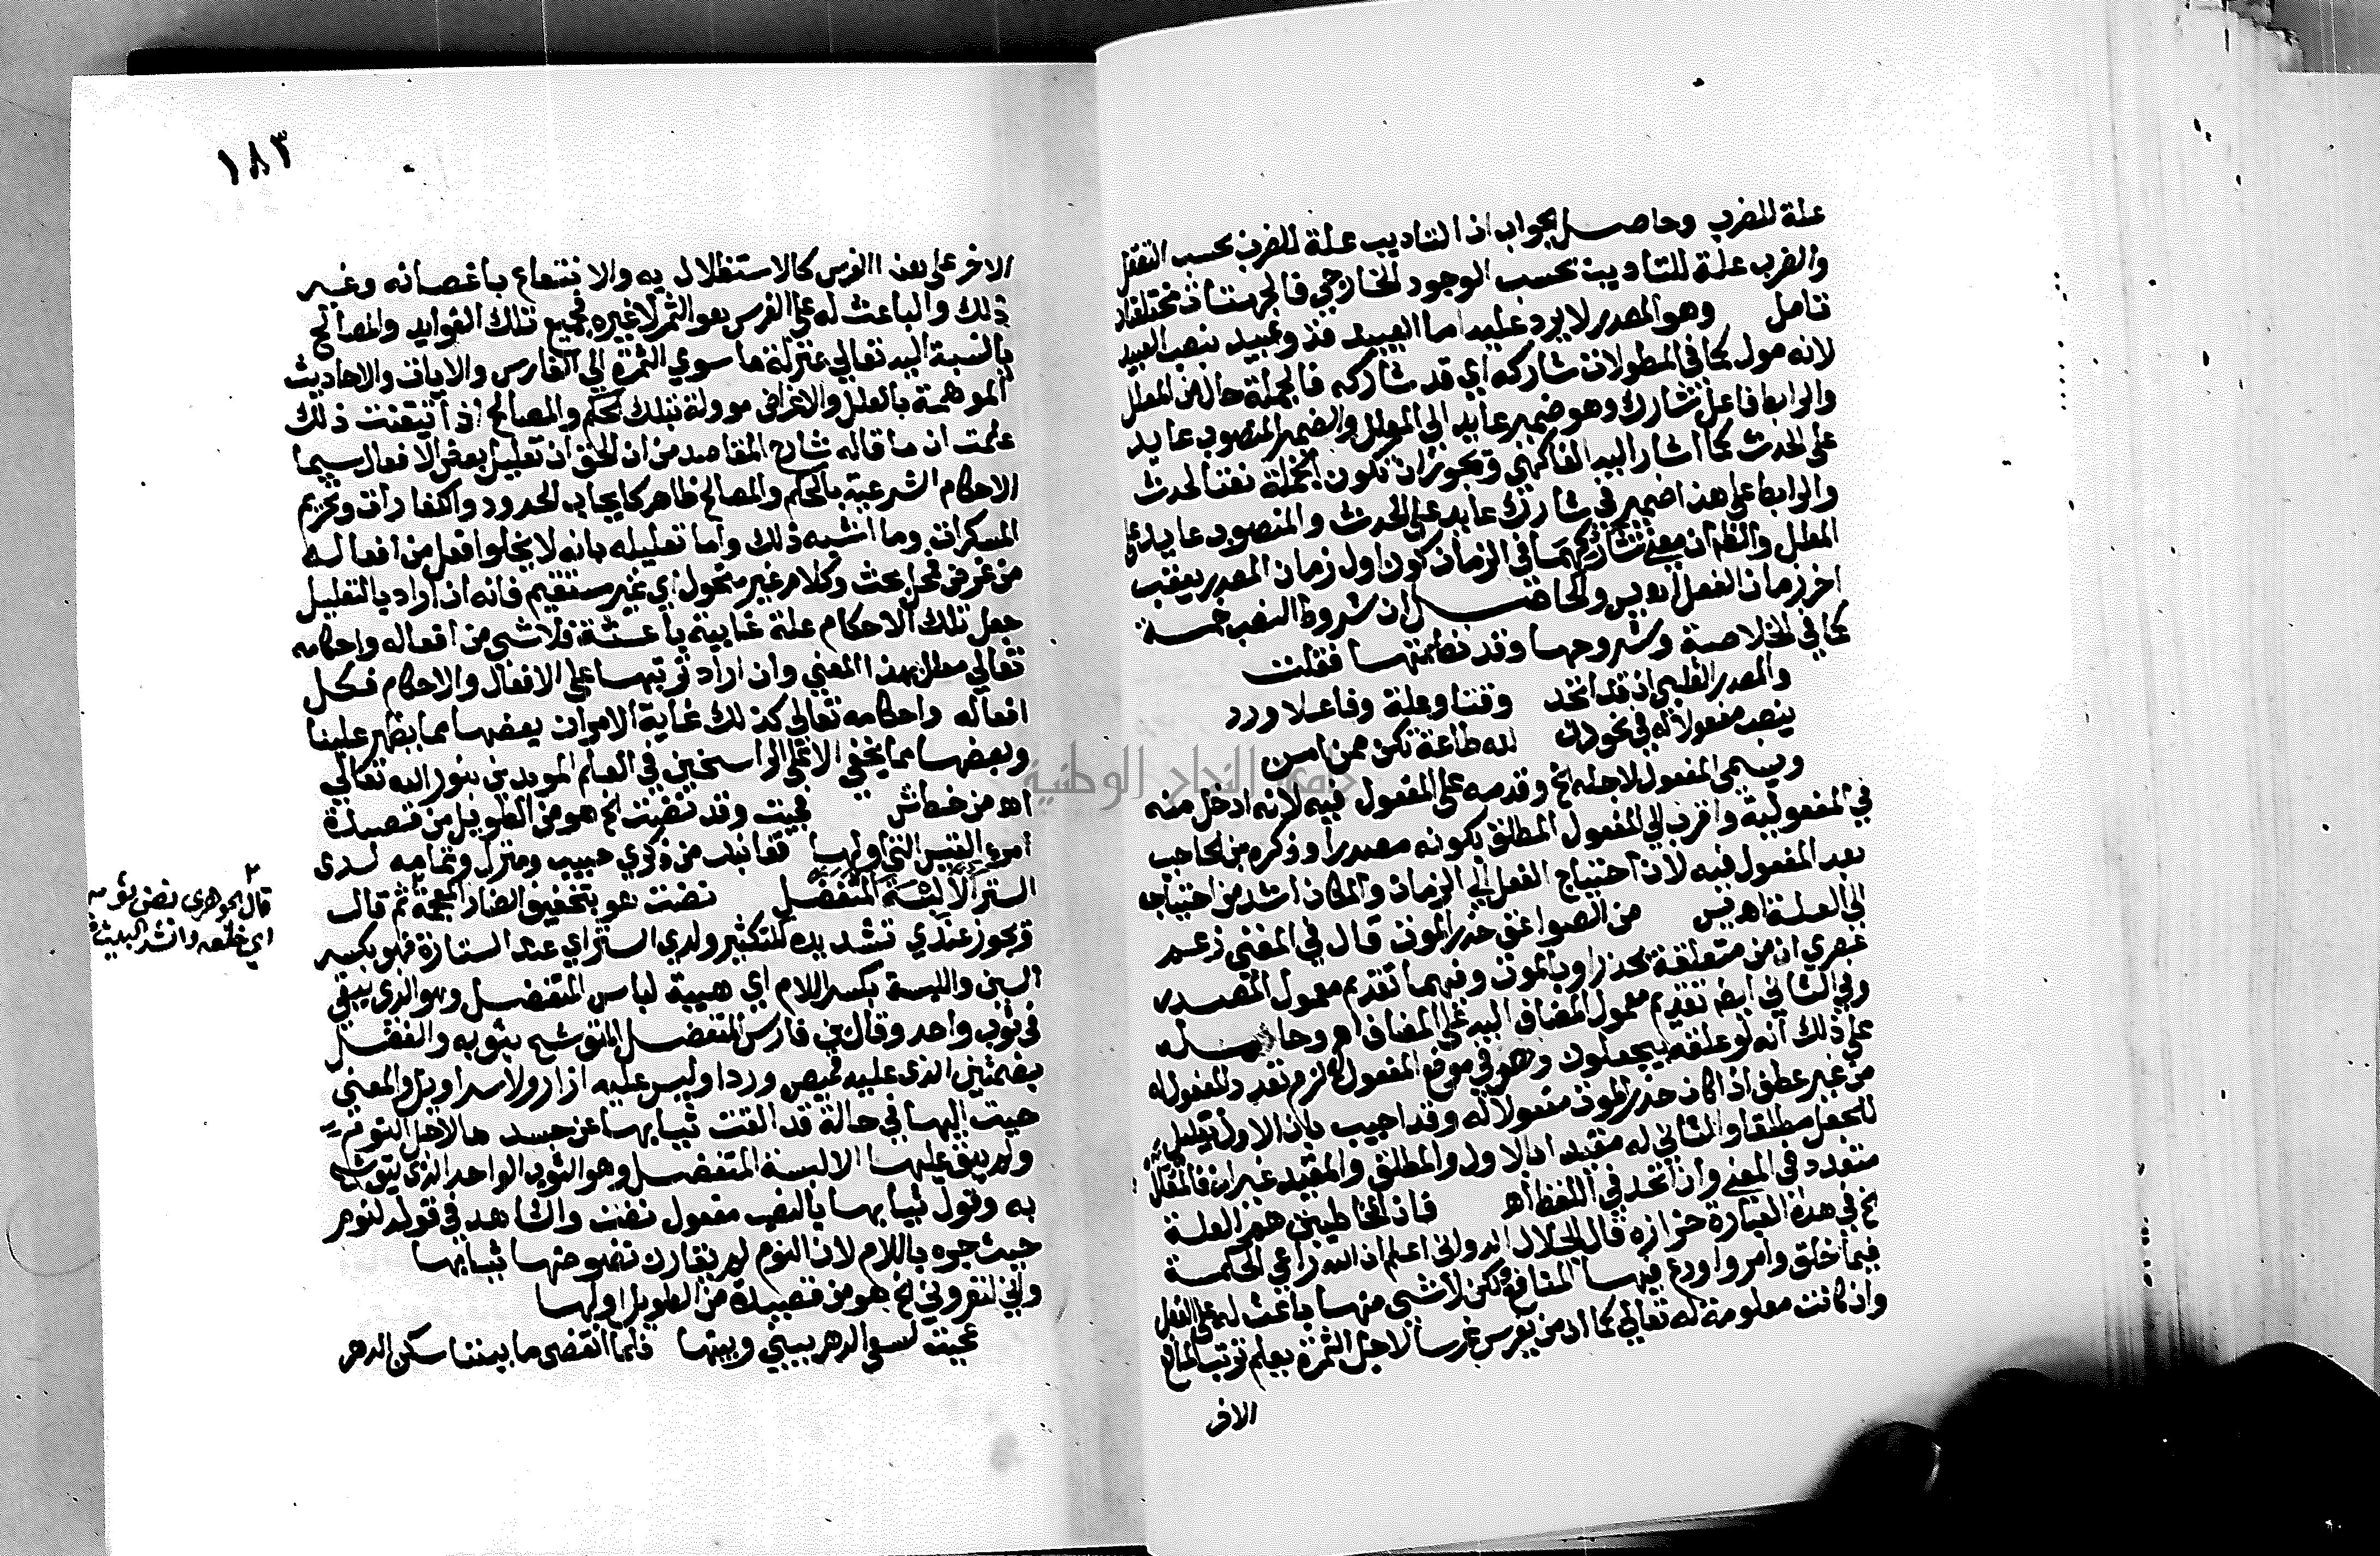 علة للضرب وحاصل الجواب ان التاديب علة للضرب بحسب التعقل
والضرب علة للتاديب بحسب الوجود الخارجي فالجهتان مختلفتان
تامل وهو المصدر لا يرد عليه اما العبيد فذو عبيد بنصب العبيد
لانه مول كما في المطولات شاركه اي قد شاركه فالجملة حال من المعلل
والرابط فاعل تشارك وهو ضمير عايد الي المعلل والضمير المنصوب عايد
على الحدث كما اشار اليه الفاكهي ويجوز ان تكون الجملة نعتا لحدث
والرابط على هذا ضمير في شارك عايد على الحدث والمنصوب عايد على
المعلل والظ ان معنى تشاركهما في الزمان كون اول زمان المصدر يعقب
اخر زمان الفعل اهـ يس والحاصل ان شروط النصب خمسة
كما في الخلاصة وشروحها وقد نظمتها فقلت
والمصدر القلبي ان قد اتحد وقتا وعلة وفاعلا ورد
ينصب مفعولا له في نحو دن لله طاعة تكن ممن امن
ويسمى المفعول لاجله الخ وقدمه على المفعول فيه لانه ادخل منه
في المفعولية واقرب الي المفعول المطلق بكونه مصدرا وذكره بن الحاجب
بعد المفعول فيه لان احتياج الفعل الي الزمان والمكان اشد من احتياجه
الي العلة اهـ يس من الصواعق حذر الموت قال في المغني زعم
عصري ان من متعلقة بحذر او بالموت وفيهما تقديم معمول المصدر
وفي الثاني ايضا تقديم معمول المضاف اليه على المضاف اهـ وحاصله
على ذلك انه لو علقه بيجعلون وهو في موضع المفعول له لزم تعدد المفعول له
من غير عطف اذا كان حذر الموت مفعولا له وقد اجيب بان الاول تعليل
للجعل مطلقا والثاني له مقيدا بالاول والمطلق والمقيد غيران فالمعلل
متعدد في المعنى وان اتحد في اللفظ اهـ فان المخاطبين هم العلة
الخ في هذه العبارة حزازه قال الجلال الدواني اعلم ان الله راعي الحكمة
فيما خلق وامر واودع فيها المنافع ولكن لا شي منها باعث له على الفعل
وان كانت معلومة له تعالي كما ان من يغرس غرسا لاجل الثمرة يعلم ترتب المنافع
الاخر
١٨٣
الاخر على هذا الغرس كالاستظلال به والانتفاع باغصانه وغير
ذلك والباعث له على الغرس هو الثمر لا غيره فجميع تلك الفوايد والمصالح
بالنسبة اليه تعالي بمنزلة ما سوي الثمرة الي الغارس والايات والاحاديث
الموهمة بالعلل والاغراض موولة بتلك الحكم والمصالح اذا تيقنت ذلك
علمت ان ما قاله شارح المقاصد من ان الحق ان تعليل بعض الافعال سيما
الاحكام الشرعية بالحكم والمصالح ظاهر كايجاب الحدود والكفارات وتحريم
المسكرات وما اشبه ذلك واما تعليله بانه لا يخلوا فعل من افعاله
من غرض فمحل بحث وكلام غير منحول اي غير مستقيم فانه ان اراد بالتعليل
جعل تلك الاحكام علة غايية باعثة فلا شي من افعاله واحكامه
تعالي معلل بهذا المعني وان اراد ترتبها على الافعال والاحكام فكل
افعاله واحكامه تعالي كذلك غاية الامر ان بعضها مما يظهر علينا
وبعضها مما يخفي الا على الراسخين في العلم المويدين بنور الله تعالي
اهـ من خط ش فجيت وقد نضت الخ هو من الطويل من قصيدة
امرء القيس التي اولها قفا نبك من ذكري حبيب ومنزل وتمامه لدى
الستر الا لبسة المتفضل نضت هو بتخفيف الضاد المعجمة ثم قال
ويجوز عندي تشديده للتكثير ولدي الستر اي عند الستارة فهو بكسر
السين واللبسة بكسر اللام اي هيية لباس المتفضل وهو الذي يبقى
في ثوب واحد وقال بن فارس المتفضل المتوشح بثوبه والفضل
بضمتين الذي عليه قميص وردا وليس عليه ازار ولا سراويل والمعنى
جيت اليها في حالة قد القت ثيابها عن جسدها لاجل النوم
ولم يبق عليها الا لبسة المتفضل وهو الثوب الواحد الذي يتوشح
به وقول ثيابها بالنصب مفعول نضت والشاهد في قوله لنوم
حيث جره باللام لان النوم لم يقارن نضو ختها ثيابها
واني لتعروني الخ هو من قصيدة من الطويل اولها
عجبت لسعي الدهر بيني وبينها فلما انقضى ما بيننا سكن الدهر
٢
قال الجوهري نضى ثوبه
اي خلعه وانشد البيت
جامعة النجاح الوطنية